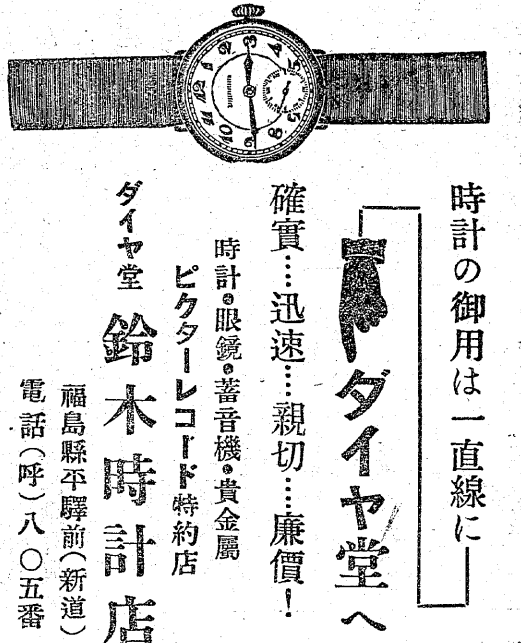 時計の御用は一直線に
ダイヤ堂へ
確實…迅速…親切……廉價！
時計・眼鏡・蓄音機・貴金屬
ビクターレコード特約店
ダイヤ堂 鈴木時計店
福島縣平驛前(新道)
電話(呼)八〇五番